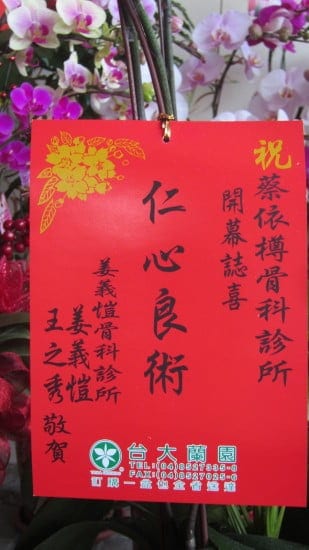 祝
蔡依樽骨科診所
開幕誌喜
仁心良術
姜義愷骨科診所
姜義愷
王之秀
敬賀
台大蘭園
TEL:(04)8527335-8
FAX:(04)8527025-6
訂購一盆也全省送達